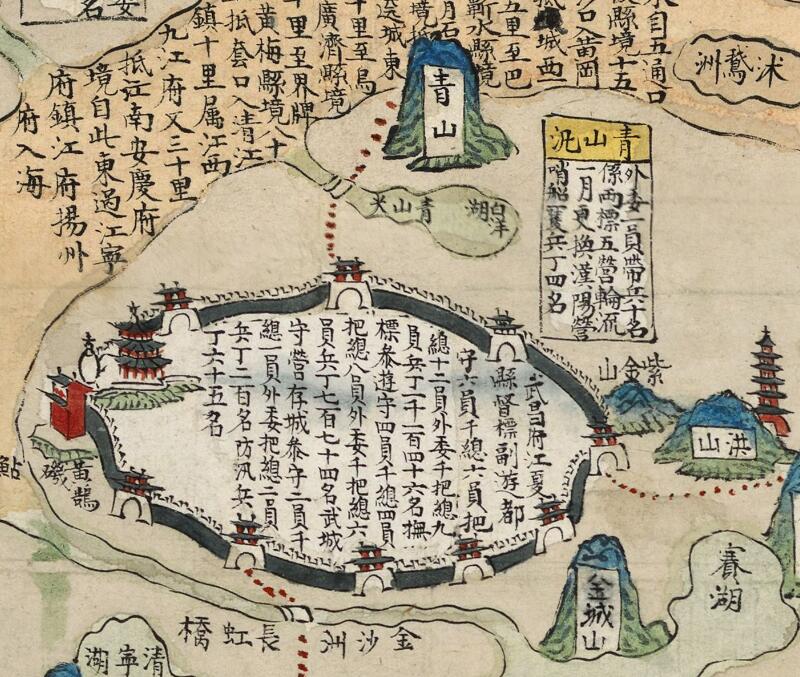 沭鵞洲
自五通口
縣境十五
口入茴岡
城西
五里至巴
蘄水縣境
城東
十里至烏
廣濟縣境
十里至界牌
黃梅縣境八十
抵套口入青江
鎮十里属江西
九江府又三十里
抵江南安慶府
境自此東過江寧
府鎮江府揚州
府入海
青山
青山汛
外委一員帶兵十名
係两標五營輪流
一月更換漢陽營
哨船隻兵丁四名
白洋湖
青山
武昌府江夏
縣督標副游都
守六員千總六員把
總十二員外委千把總九
員兵丁一千一百四十六名撫
標叅遊守四員千總四員
把總八員外委千把總六
員兵丁七百七十四名武城
守營存城叅守二員千
總一員外委把總二員
兵丁二百名防汛兵
丁六十五名
紫金山
洪山
黃鵠磯
鮎
賽湖
金城山
金沙洲
長虹橋
清寧湖